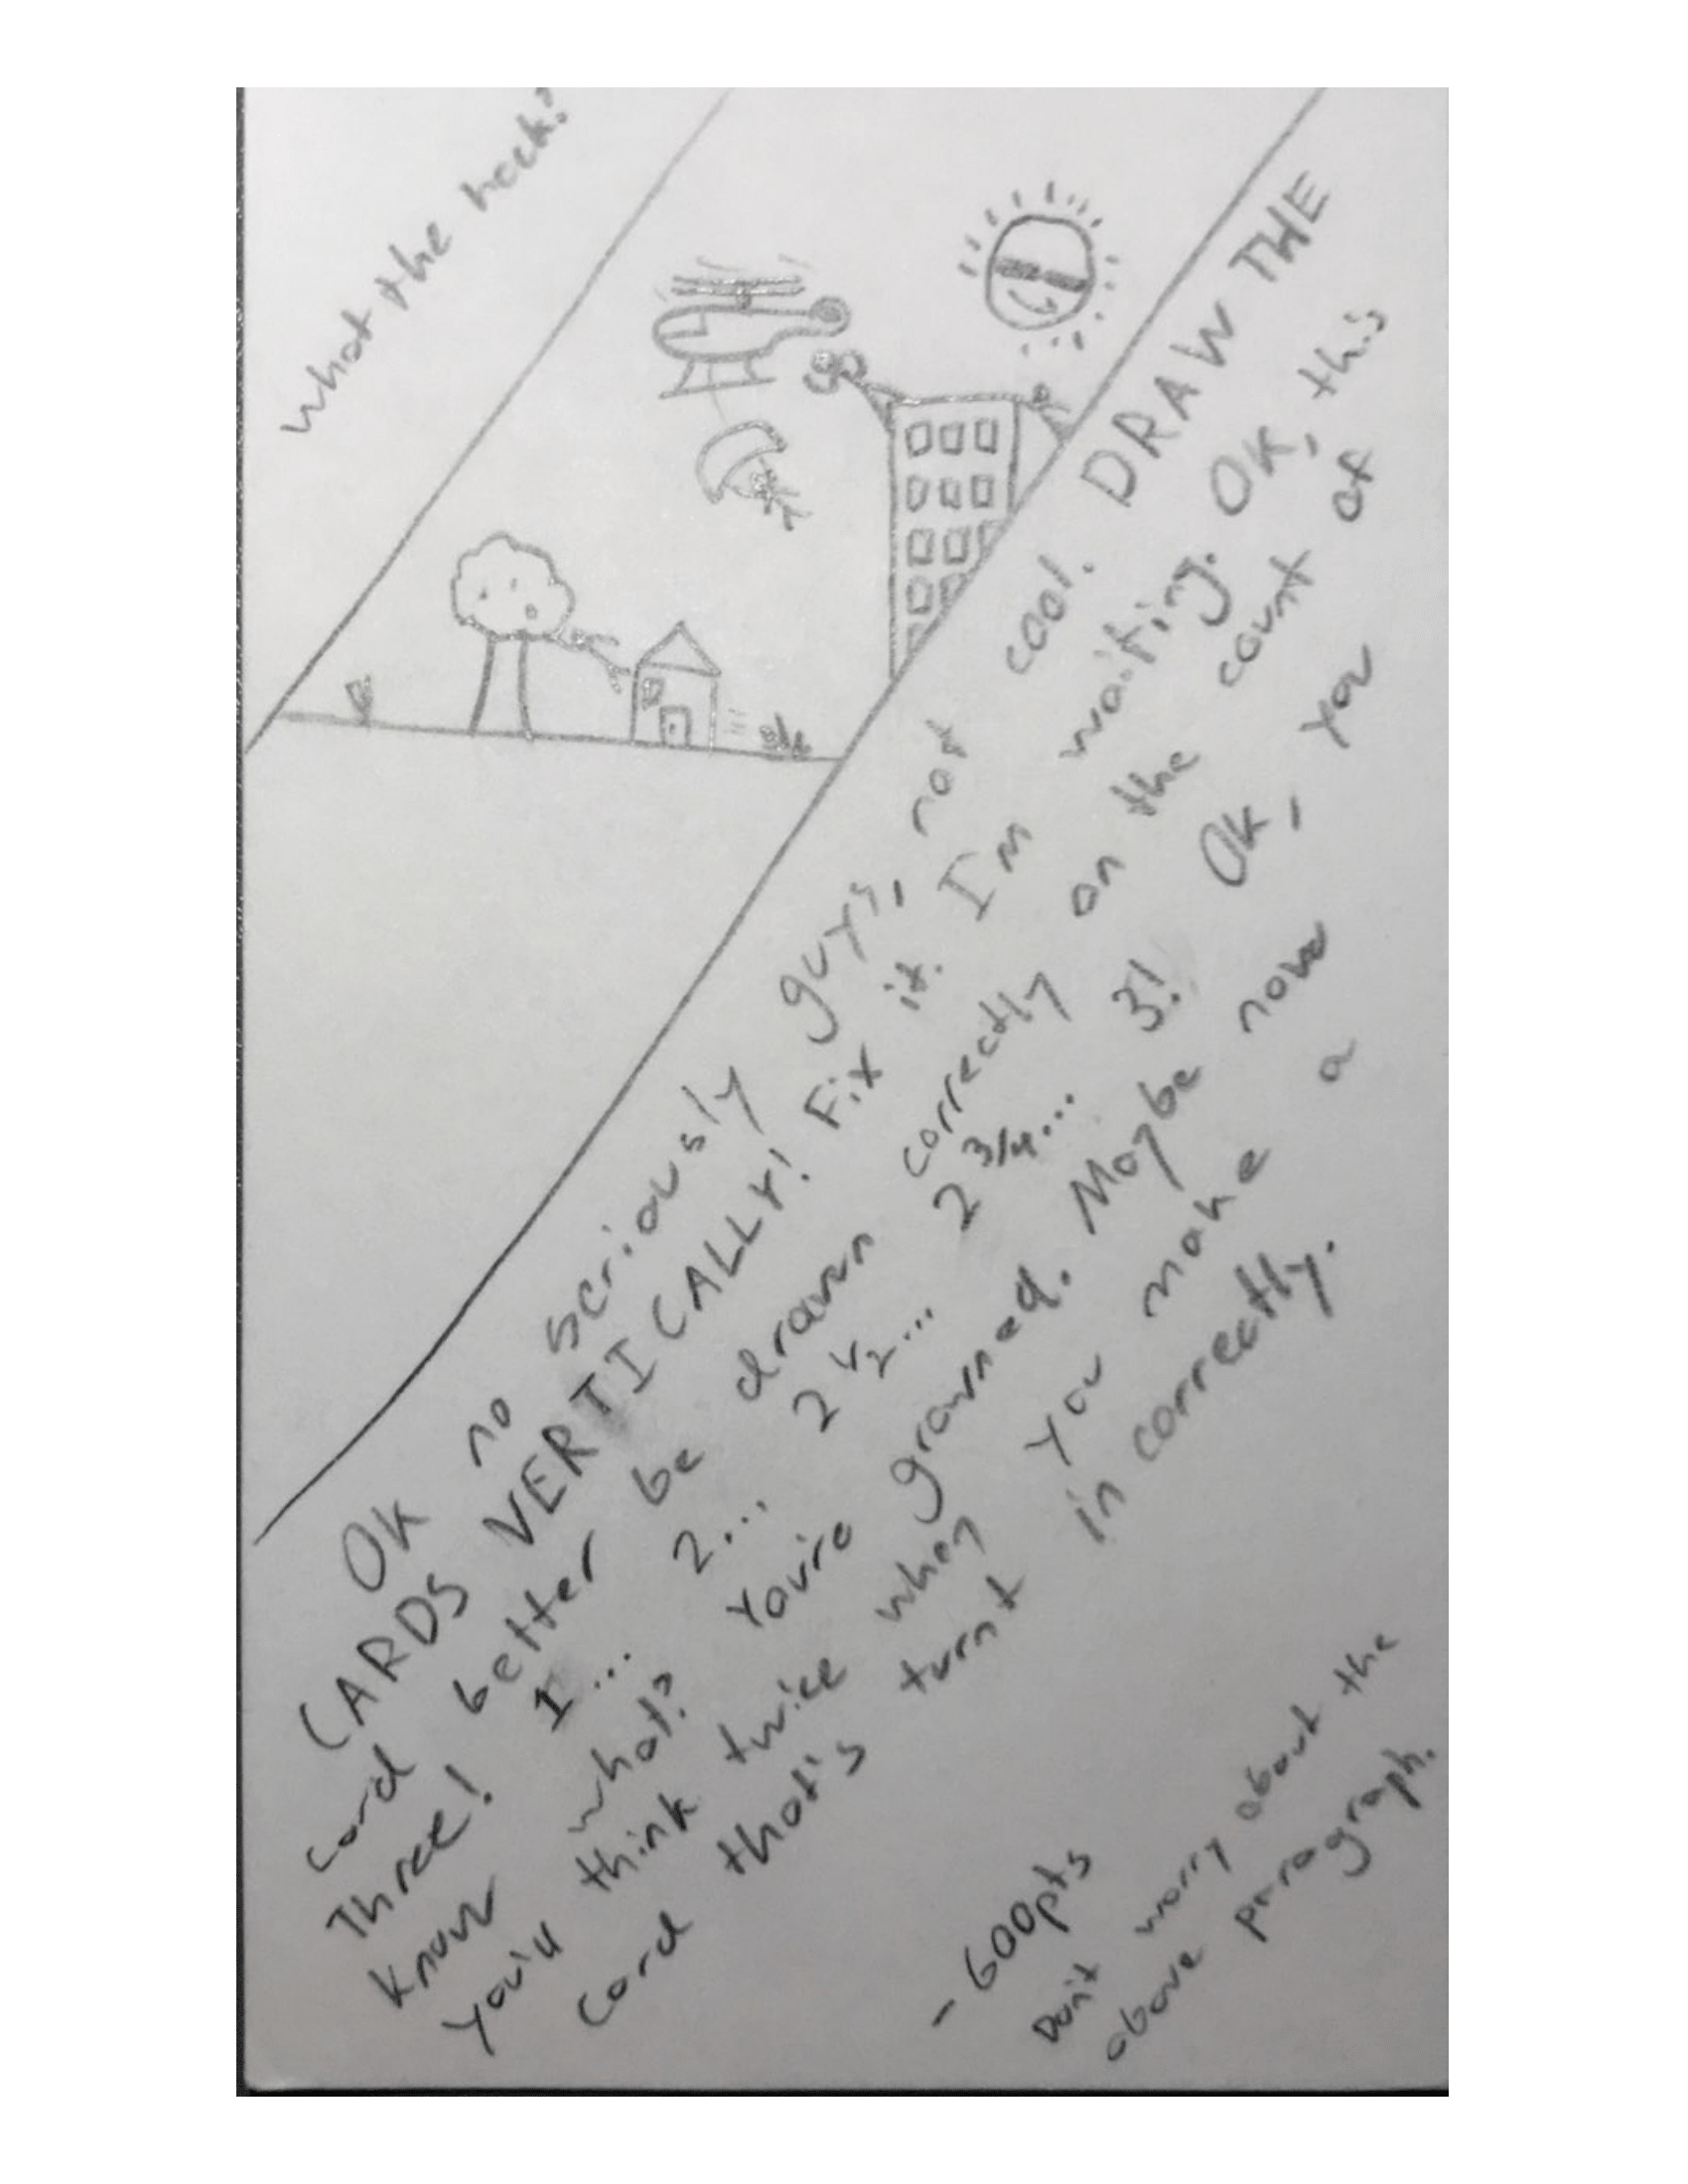 What the heck?
Ok no seriously guys, not cool. DRAW THE
CARDS VERTICALLY! Fix it. I'm waiting. Ok, this
card better be drawn correctly on the count of
Three! 1... 2... 2 1/2... 2 3/4... 3! Ok, you
know what? You're grouned. Maybe now
you'll think twice when you make a
card that's turnt in correctly.
- 600pts
Don't worry about the
above paragraph.